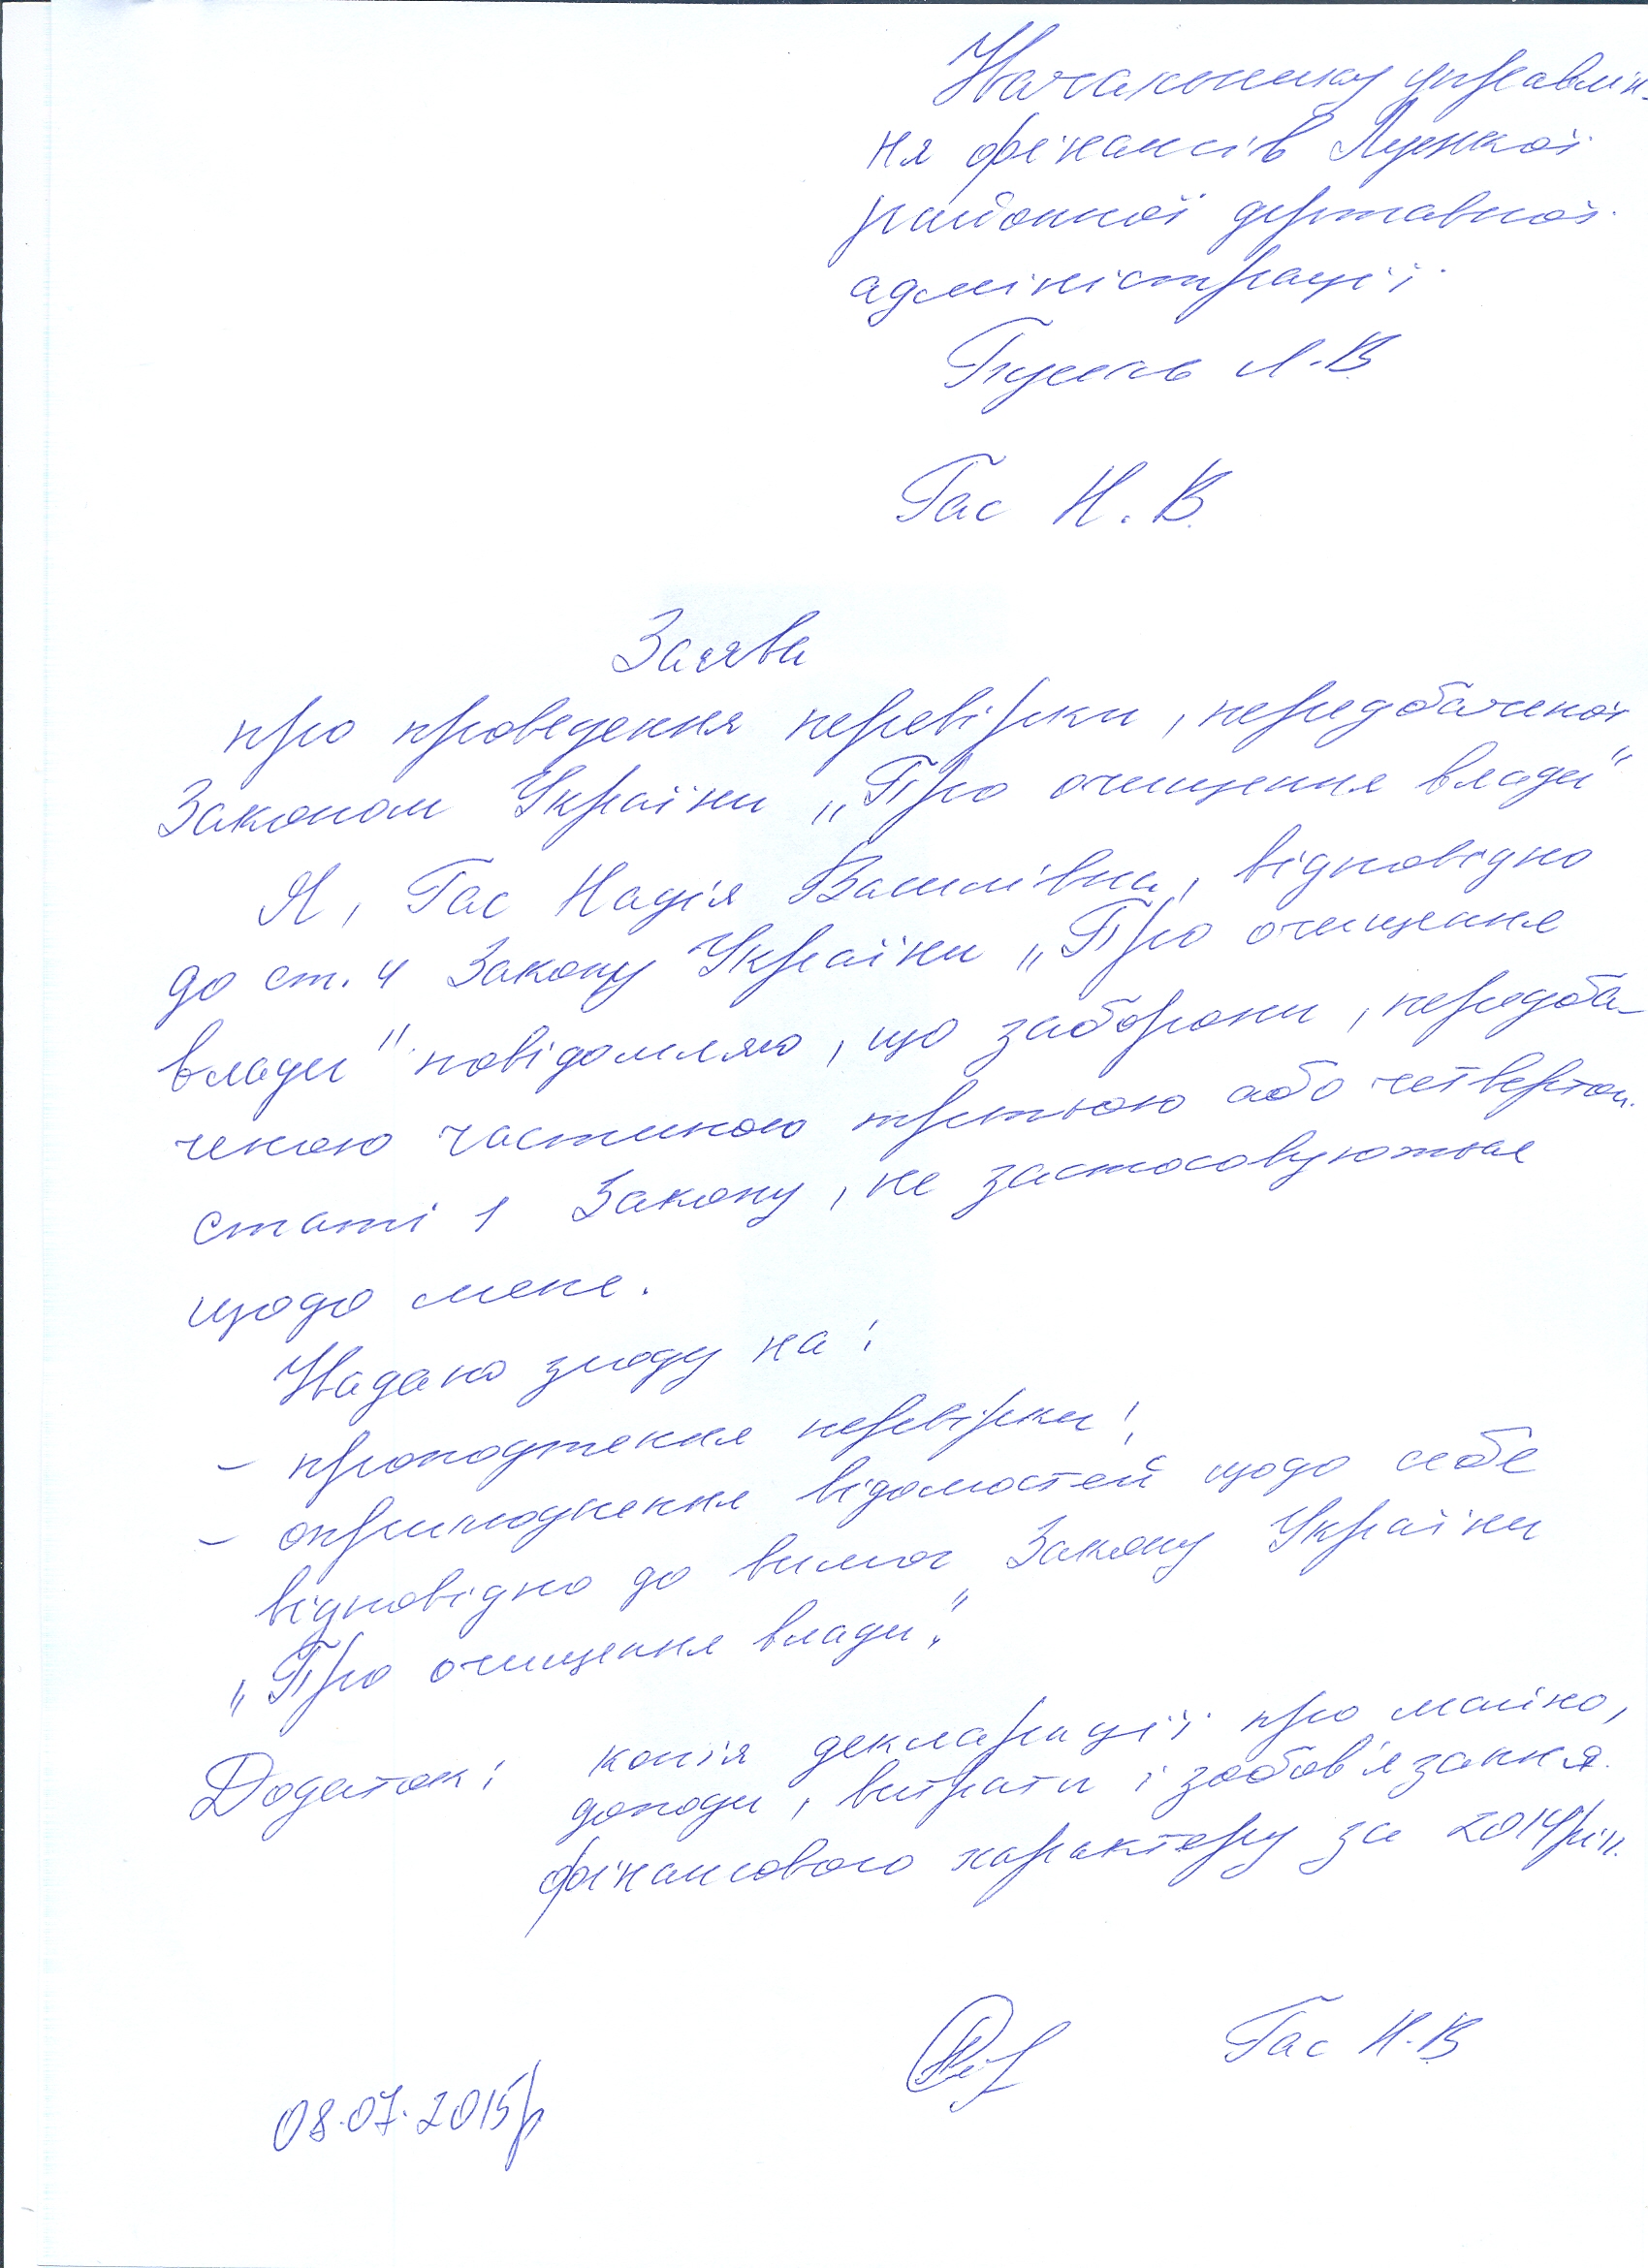 Начальнику управлін-
ня фінансів Луцької
районної державної
адміністрації
Л.В.
Гас Н.В.
Заява
про проведення перевірки, передбаченої
Законом України „Про очищення влади"
Я, Гас Надія Василівна, відповідно
до ст. 4 Закону України „Про очищення
влади" повідомляю, що заборони, передба-
ченою частиною третьою або четвертою
статі 1 Закону, не застосовуються
щодо мене.
Надаю згоду на:
- проходження перевірки;
- оприлюднення відомостей щодо себе
відповідно до вимог Закону України
„Про очищення влади".
Додаток: копія декларації про майно,
доходи, витрати і зобов'язання
фінансового характеру за 2014 рік.
Гас Н.В
08.07.2015р